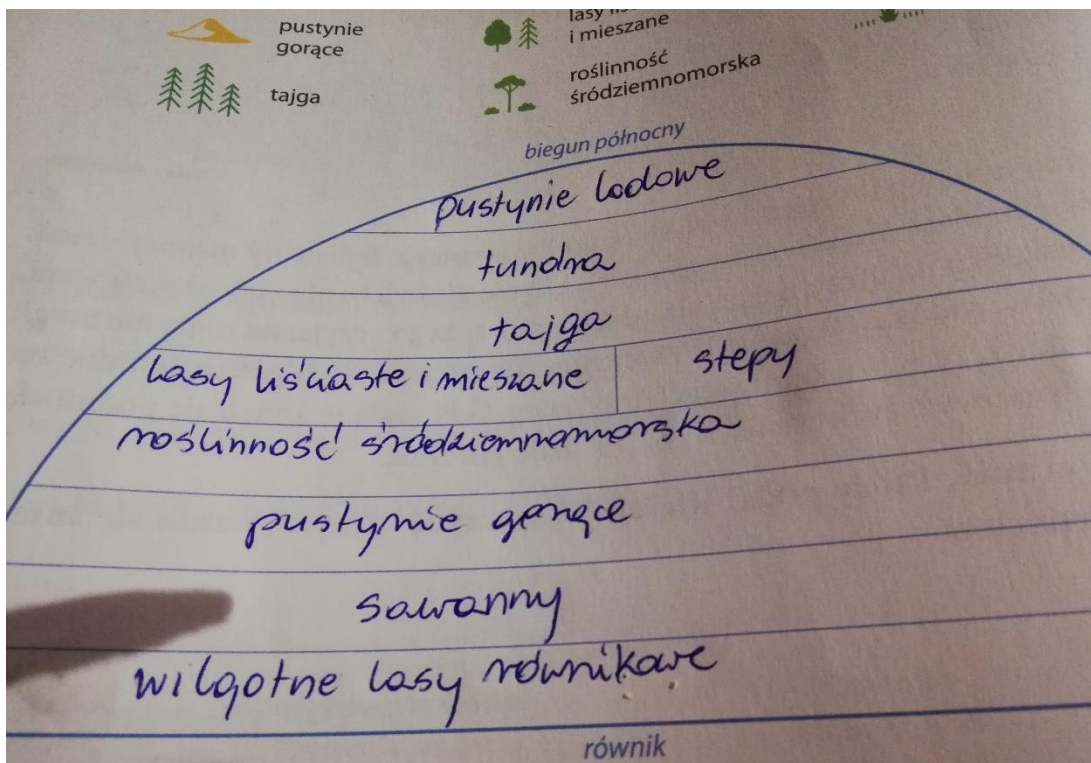 pustynie
gorące
tajga
i mieszane
roślinność
śródziemnomorska
biegun północny
pustynie lodowe
tundra
tajga
lasy liściaste i mieszane
stepy
roślinność śródziemnomorska
pustynie gorące
sawanny
wilgotne lasy równikowe
równik